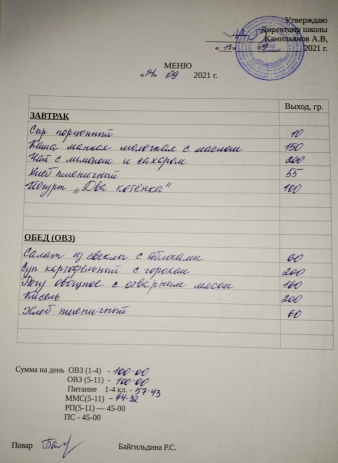 Утверждаю
Директор школы
Камильянов А.В,
« 13 » 09 2021 г.
МЕНЮ
«14» 09 2021 г.
Выход, гр.
ЗАВТРАК
Сыр порционный 10
Каша манная молочная с маслом 150
Чай с лимоном и сахаром 200
Хлеб пшеничный 55
Йогурт „Два котёнка“ 100
ОБЕД (ОВЗ)
Салат из свеклы с яблоками 60
Суп картофельный с горохом 200
Рагу овощное с отварным мясом 160
Кисель 200
Хлеб пшеничный 60
Сумма на день ОВЗ (1-4) - 100-00
ОВЗ (5-11) - 100-00
Питание 1-4 кл. - 57-43
ММС(5-11) - 94-32
РП(5-11) — 45-00
ПС - 45-00
Повар Байгильдина Р.С.